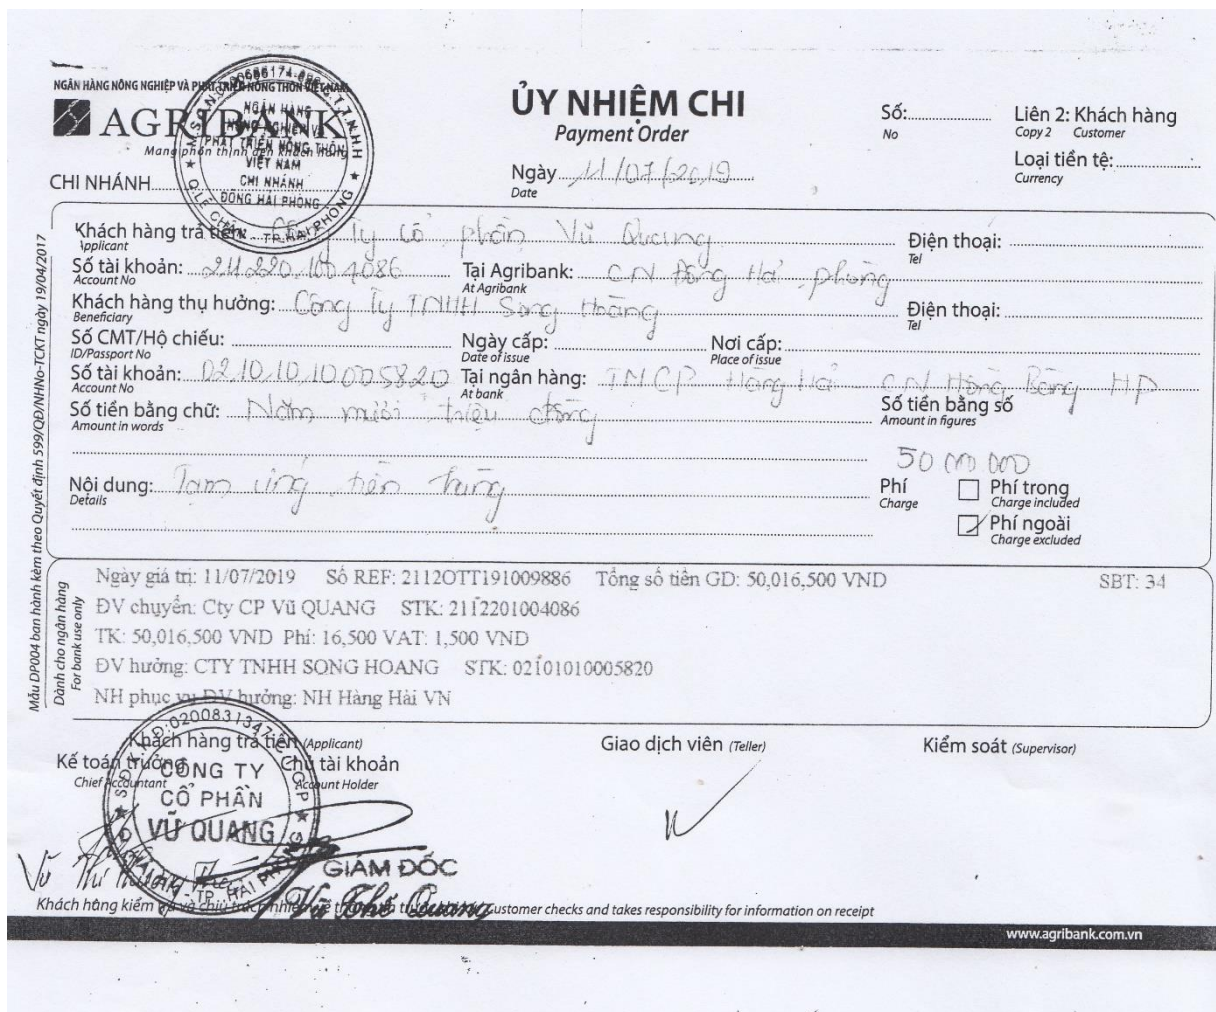 NGÂN HÀNG NÔNG NGHIỆP VÀ PHÁT TRIỂN NÔNG THÔN VIỆT NAM
AGRIBANK
Mang phồn thịnh đến khách hàng
CHI NHÁNH
NGÂN HÀNG
NÔNG NGHIỆP VÀ
PHÁT TRIỂN NÔNG THÔN
VIỆT NAM
CHI NHÁNH
ĐÔNG HẢI PHÒNG
Q.LÊ CHÂN - TP.HẢI PHÒNG
ỦY NHIỆM CHI
Payment Order
Ngày 11/07/2019
Date
Số:
No
Liên 2: Khách hàng
Copy 2 Customer
Loại tiền tệ:
Currency
Mẫu DP004 ban hành kèm theo Quyết định 599/QĐ/NHNo-TCKT ngày 19/04/2017
Khách hàng trả tiền: Công Ty Cổ phần Vũ Quang Điện thoại:
Applicant Tel
Số tài khoản: 211220.100 4086 Tại Agribank: CN Đông Hải phòng
Account No At Agribank
Khách hàng thụ hưởng: Công Ty TNHH Song Hoàng Điện thoại:
Beneficiary Tel
Số CMT/Hộ chiếu: Ngày cấp: Nơi cấp:
ID/Passport No Date of issue Place of issue
Số tài khoản: 02.10.10.10005820 Tại ngân hàng: TMCP Hàng Hải CN Hồng Bàng HP
Account No At bank
Số tiền bằng chữ: Năm mươi triệu đồng Số tiền bằng số
Amount in words Amount in figures
50 000 000
Nội dung: Tạm ứng tiền hàng
Details
Phí Phí trong
Charge Charge included
Phí ngoài
Charge excluded
Dành cho ngân hàng
For bank use only
Ngày giá trị: 11/07/2019 Số REF: 2112OTT191009886 Tổng số tiền GD: 50,016,500 VND SBT: 34
ĐV chuyển: Cty CP Vũ QUANG STK: 2112201004086
TK: 50,016,500 VND Phí: 16,500 VAT: 1,500 VND
ĐV hưởng: CTY TNHH SONG HOANG STK: 02101010005820
NH phục vụ ĐV hưởng: NH Hàng Hải VN
Khách hàng trả tiền (Applicant) Giao dịch viên (Teller) Kiểm soát (Supervisor)
Kế toán trưởng Chủ tài khoản
Chief Accountant Account Holder
0200831347
CÔNG TY
CỔ PHẦN
VŨ QUANG
TP HẢI PHÒNG
GIÁM ĐỐC
Vũ Thế Quang
Vũ Thị
Khách hàng kiểm tra và chịu trách nhiệm về thông tin Customer checks and takes responsibility for information on receipt
www.agribank.com.vn